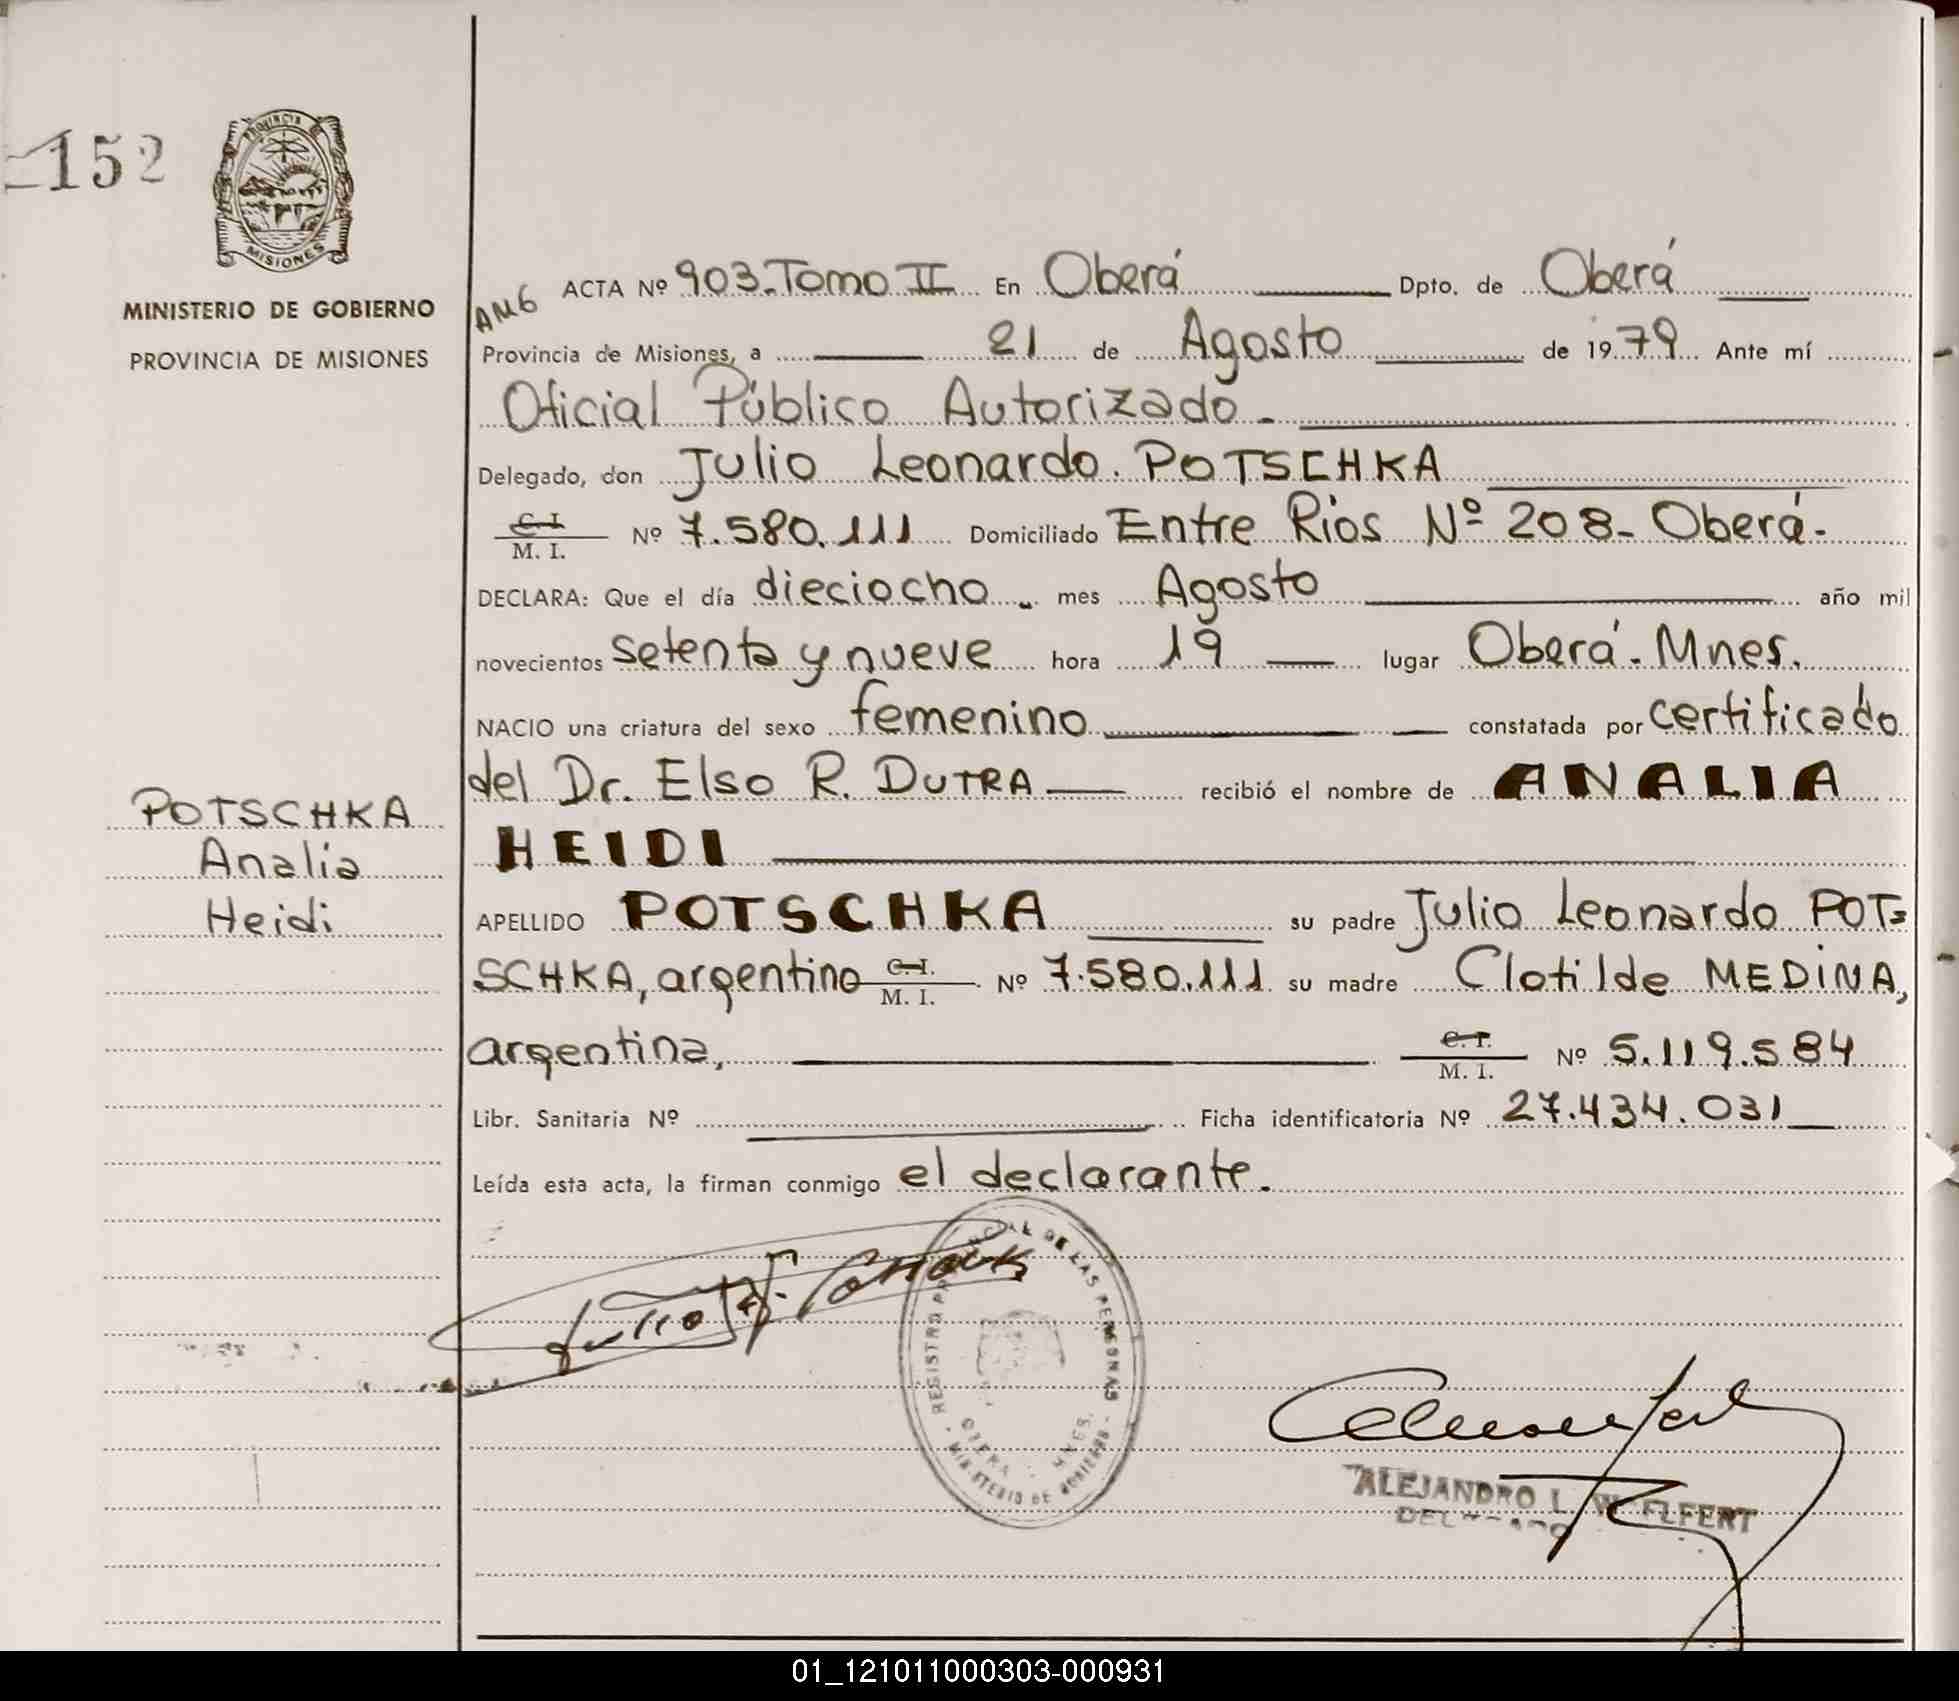 152
PROVINCIA DE
MISIONES
MINISTERIO DE GOBIERNO
PROVINCIA DE MISIONES
POTSCHKA
Analia
Heidi
AM6
ACTA Nº 903-Tomo II En Oberá Dpto. de Oberá
Provincia de Misiones, a 21 de Agosto de 1979 Ante mí
Oficial Público Autorizado.
Delegado, don Julio Leonardo POTSCHKA
C. I. M. I. Nº 7.580.111 Domiciliado Entre Ríos Nº 208- Oberá-
DECLARA: Que el día dieciocho mes Agosto año mil
novecientos setenta y nueve hora 19 lugar Oberá. Mnes.
NACIO una criatura del sexo femenino constatada por certificado
del Dr. Elso R. DUTRA recibió el nombre de ANALIA
HEIDI
APELLIDO POTSCHKA su padre Julio Leonardo POT=
SCHKA, argentino C. I. M. I. Nº 7.580.111 su madre Clotilde MEDINA,
argentina, C. I. M. I. Nº 5.119.584
Libr. Sanitaria Nº Ficha identificatoria Nº 27.434.031
Leída esta acta, la firman conmigo el declarante.
REGISTRO DE LAS PERSONAS
OBERA MNES.
MINISTERIO DE GOBIERNO
ALEJANDRO L.
01_121011000303-000931